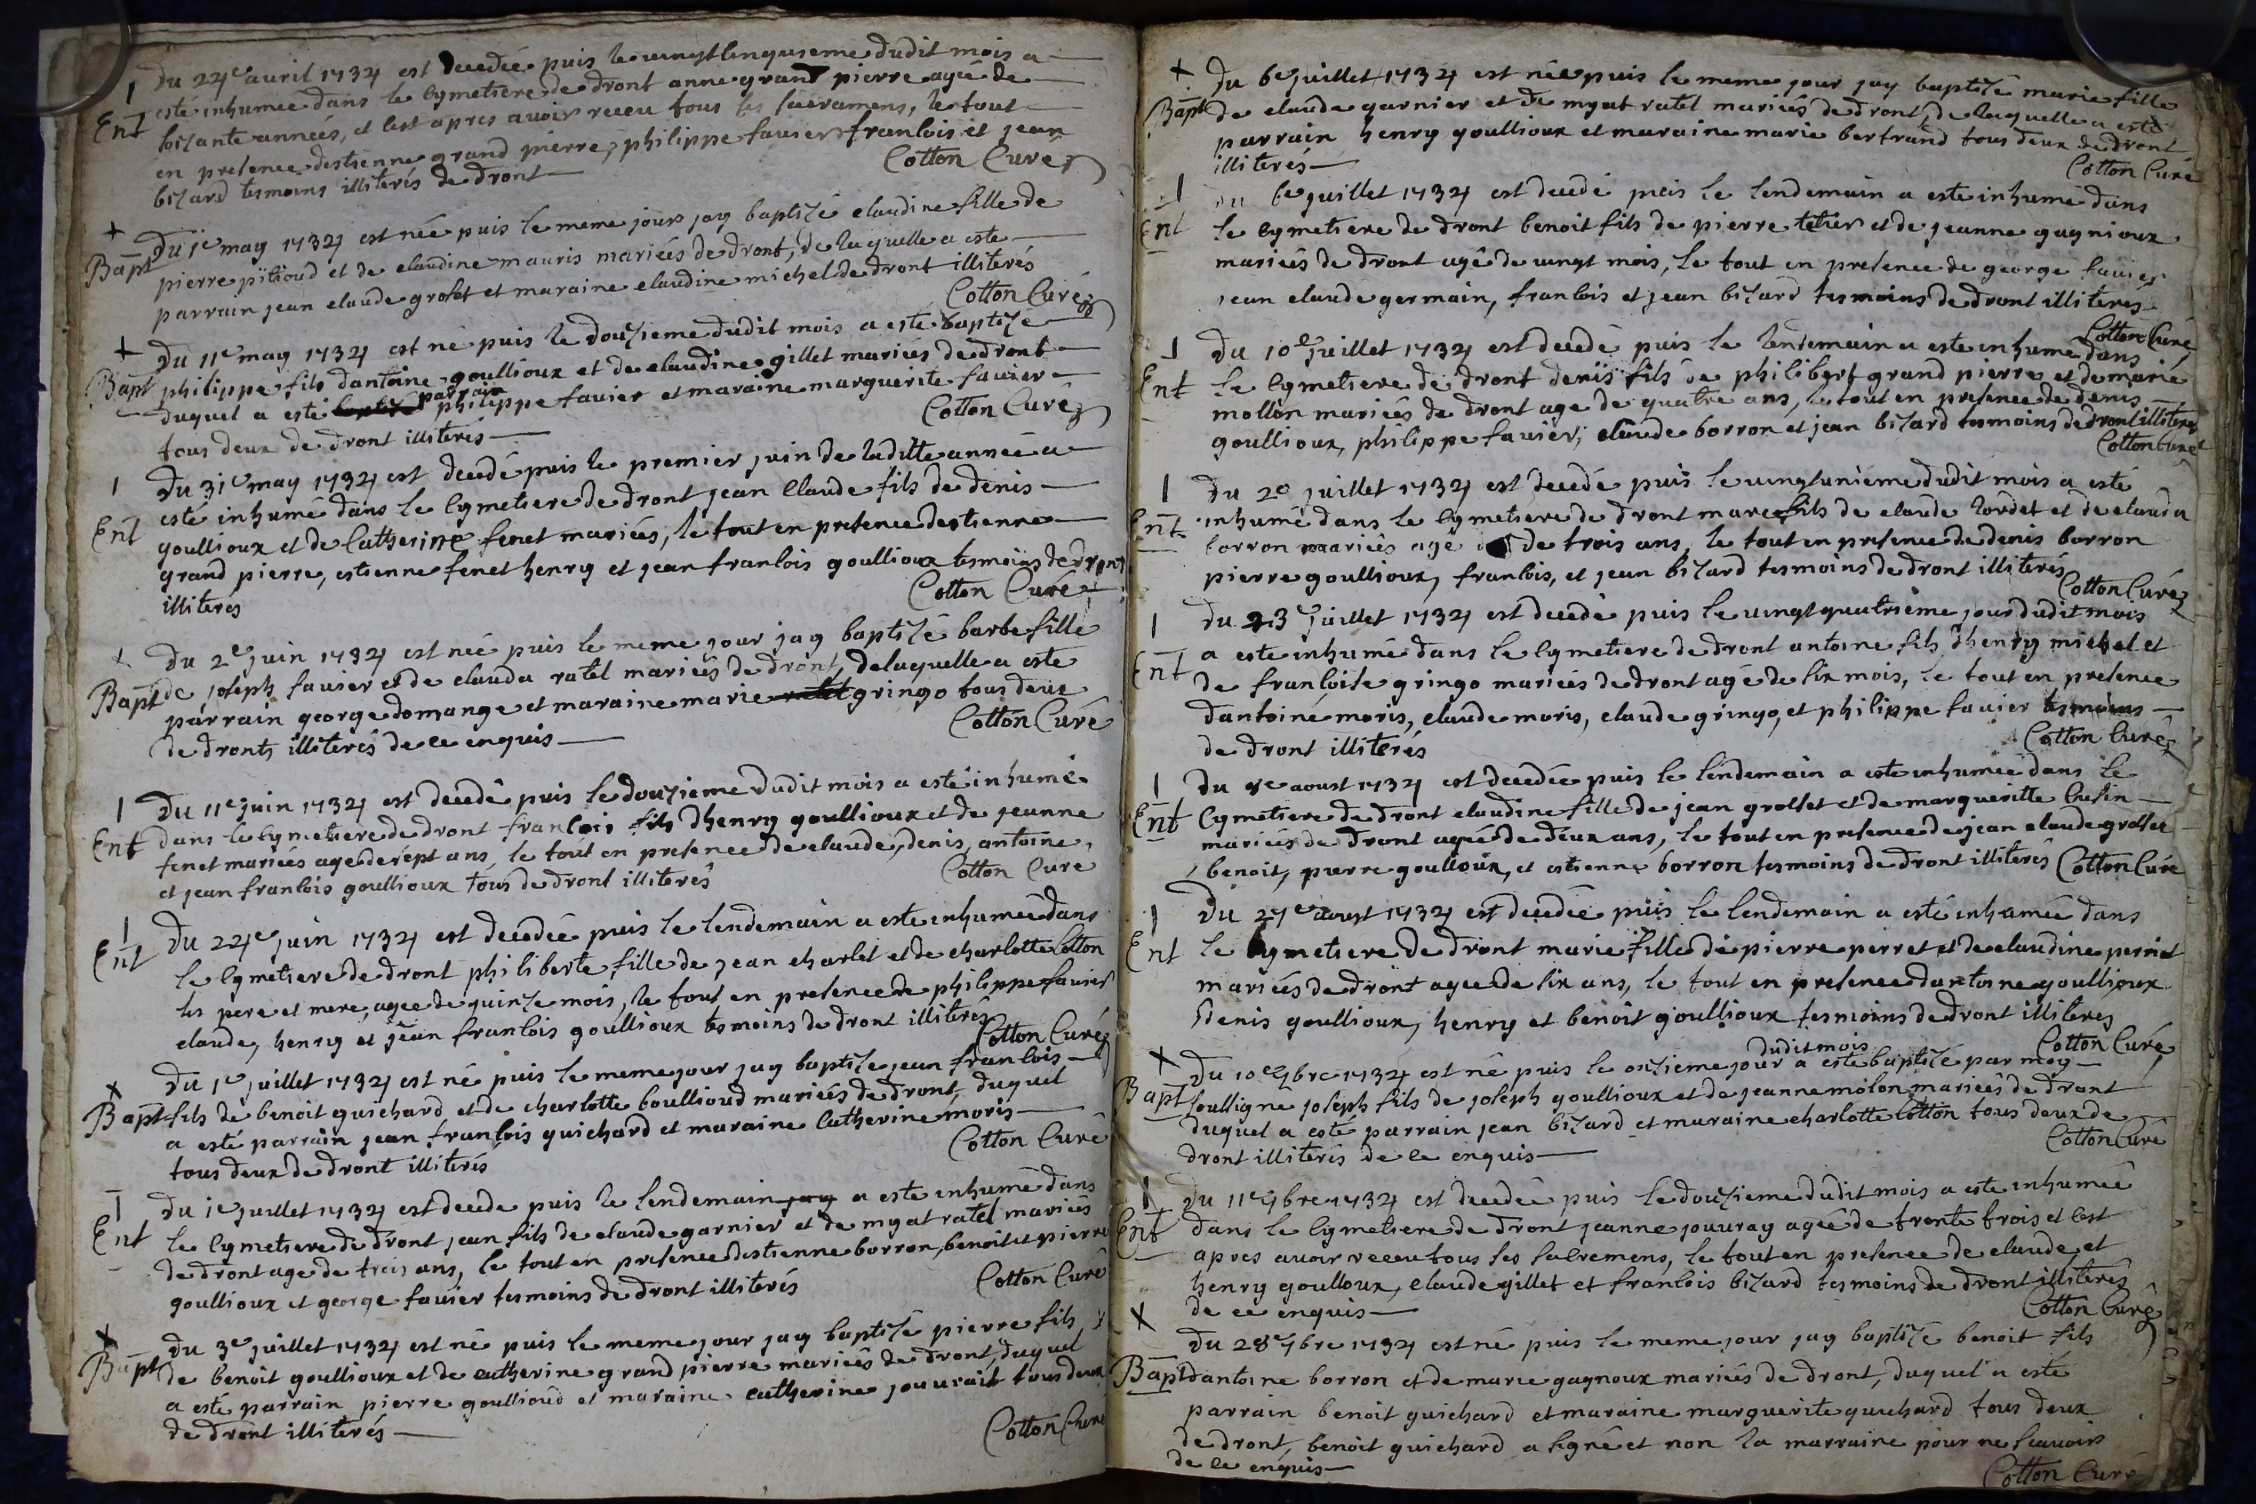 Du 24e avril 1734 est decedée puis le vingtcinquieme dudit mois a
Ent esté inhumée dans le cymetiere de dront anne grand pierre agée de
soisante années, et cest apres avoir receu tous les sacramens, le tout
en presence destienne grand pierre, philippe favier françois et jean
bisard tesmoins illiterés de dront
Cotton Curé
Du 1e may 1734 est née puis le meme jour jay baptisé claudine fille de
Bapt pierre pitioud et de claudine mauris mariés de dront, de laquelle a este
parrain jean claude groset et maraine claudine michel de dront illiterés
Cotton Curé
Du 11e may 1734 est né puis le douzieme dudit mois a este baptisé
Bapt philippe fils dantoine goullioux et de claudine gillet mariés de dront
duquel a esté parrain philippe favier et maraine marguerite favier
tous deux de dront illiterés
Cotton Curé
Du 31e may 1734 est decedé puis le premier juin de laditte année a
Ent esté inhumé dans le cymetiere de dront jean Claude fils de denis
goullioux et de Catherine fenet mariés, le tout en presence destienne
grand pierre, estienne fenet henry et jean françois goullioux tesmoins de dront
illiterés
Cotton Curé
Du 2e juin 1734 est née puis le meme jour jay baptisé barbe fille
Bapt de joseph favier et de clauda ratel mariés de dront, de laquelle a este
parrain george domange et maraine marie gringo tous deux
de dront, illiterés de ce enquis
Cotton Curé
Du 11e juin 1734 est decedé puis le douzieme dudit mois a esté inhumé
Ent dans le cymetiere de dront françois fils dhenry goullioux et de jeanne
fenet mariés age de sept ans, le tout en presence de claude, denis, antoine,
et jean françois goullioux tous de dront illiterés
Cotton Curé
Du 24e juin 1734 est decedée puis le lendemain a esté inhumée dans
Ent le cymetiere de dront philiberte fille de jean charlet et de charlotte Cotton
ses pere et mere, agée de quinze mois, le tout en presence de philippe favier
claude, henry et jean françois goullioux tesmoins de dront illiterés
Cotton Curé
Du 1e juillet 1734 est né puis le meme jour jay baptisé jean françois
Bapt fils de benoit guichard et de charlotte boullioud mariés de dront, duquel
a esté parrain jean françois guichard et maraine Catherine moris
tous deux de dront illiterés
Cotton Curé
Du 1e juillet 1734 est decede puis le lendemain a este inhumé dans
Ent le cymetiere de dront jean fils de claude garnier et de myat ratel mariés
de dront age de trois ans, le tout en presence destienne borron, benoit et pierre
goullioux et george favier tesmoins de dront illiterés
Cotton Curé
Du 3e juillet 1734 est né puis le meme jour jay baptisé pierre fils
Bapt de benoit goullioux et de catherine grand pierre mariés de dront, duquel
a esté parrain pierre goullioud et maraine catherine jouvrait tous deux
de dront illiterés
Cotton Curé
Du 6e juillet 1734 est née puis le meme jour jay baptisé marie fille
Bapt de claude garnier et de myat ratel mariés de dront, de laquelle a esté
parrain henry goullioux et maraine marie bertrand tous deux de dront
illiterés
Cotton Curé
Du 6e juillet 1734 est decedé puis le lendemain a este inhumé dans
Ent le cymetiere de dront benoit fils de pierre tetier et de jeanne gagnioux
mariés de dront agé de vingt mois, le tout en presence de george favier
jean claude germain, françois et jean bisard tesmoins de dront illiterés
Cotton Curé
Du 10e juillet 1734 est decedé puis le lendemain a este inhumé dans
Ent le cymetiere de dront denis fils de philibert grand pierre et de marie
mollon mariés de dront age de quatre ans, le tout en presence de denis
goullioux, philippe favier, claude borron et jean bisard tesmoins de dront illiterés
Cotton Curé
Du 20 juillet 1734 est decedé puis le vingtunieme dudit mois a esté
Ent inhumé dans le cymetiere de dront marc fils de claude Cordet et de clauda
borron mariés agé de trois ans, le tout en presence de denis borron
pierre goullioux, françois, et jean bisard tesmoins de dront illiterés
Cotton Curé
Du 23e juillet 1734 est decedé puis le vingtquatrième jour dudit mois
Ent a este inhumé dans le cymetiere de dront antoine fils dhenry michel et
de françoise gringo mariés de dront agé de six mois, le tout en presence
dantoine moris, claude moris, claude gringo, et philippe favier tesmoins
de dront illiterés
Cotton Curé
Du aoust 1734 est decedée puis le lendemain a este inhumée dans le
Ent Cymetiere de dront claudine fille de jean grosset et de margueritte Cusin
mariés de dront agée de deux ans, le tout en presence de jean claude grosset
benoit, pierre goullioux, et estienne borron tesmoins de dront illiterés Cotton Curé
Du 27e aoust 1734 est decedée puis le lendemain a esté inhumée dans
Ent le cymetiere de dront marie fille de pierre perret et de claudine perrict
mariés de dront agée de six ans, le tout en presence dantoine goullioux
denis goullioux, henry et benoit goullioux tesmoins de dront illiterés
Cotton Curé
Du 10e 7bre 1734 est né puis le onzieme jour dudit mois a este baptisé par moy
Bapt soussigné joseph fils de joseph goullioux et de jeanne molon mariés de dront
duquel a esté parrain jean bisard et maraine charlotte Cotton tous deux de
dront illiterés de ce enquis
Cotton Curé
Du 11e 7bre 1734 est decedée puis le douzieme dudit mois a este inhumée
Ent dans le cymetiere de dront jeanne jouvray agée de trente trois et cest
apres avoir receu tous ses sacremens, le tout en presence de claude et
henry goulloux, claude gillet et françois bisard tesmoins de dront illiterés
de ce enquis
Cotton Curé
Du 28e 7bre 1734 est né puis le meme jour jay baptisé benoit fils
Bapt dantoine borron et de marie gagnoux mariés de dront, duquel a esté
parrain benoit guichard et maraine marguerite guichard tous deux
de dront, benoit guichard a signé et non la marraine pour ne scavoir
de ce enquis
Cotton Curé